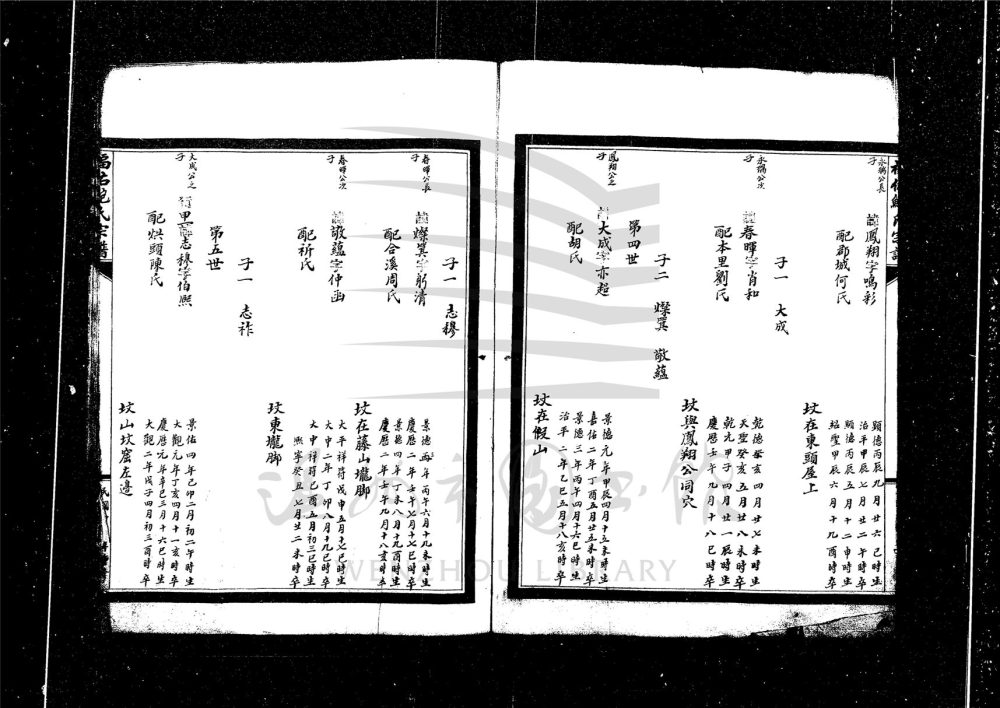 永禱公長子
諱鳳翔字鳴彩
顯德丙辰九月廿六巳時生
治平甲辰七月廿二午時卒
配郡城何氏
顯德丙辰五月十二申時生
紹聖甲辰六月十九酉時卒
坟在東頭屋上
子一 大成
永禱公次子
諱春暉字肖和
乾德癸亥四月廿七未時生
天聖癸亥五月廿八未時卒
配本里劉氏
乾元甲子四月廿一辰時生
慶曆壬午九月十八巳時卒
坟與鳳翔公同穴
子二 燦翼 敬蘊
第四世
鳳翔公之子
諱大成字亦超
景德元年甲辰四月十五未時生
嘉佑二年丁酉五月廿五未時卒
配胡氏
景德三年丙午四月十六巳時生
治平二年乙巳五月十八亥時卒
坟在假山
子一 志穆
春暉公長子
諱燦翼字躬清
景德丙年丙午六月十九未時生
慶曆二年壬午七月十七巳時卒
配合溪周氏
景德四年丁未八月十九酉時生
慶曆二年壬午九月十八亥時卒
坟在藤山壠脚
子一 志祚
春暉公次子
諱敬蘊字仲函
太平祥符戊申五月十七巳時生
大中二年丁卯八月十九巳時卒
配祈氏
大中祥符己酉五月初三巳時生
熙寧癸丑七月廿二未時卒
坟東壠脚
第五世
大成公之子
里諱志穆字伯熙
景佑四年己卯二月初二午時生
大觀元年丁亥四月十一亥時卒
配烘頭陳氏
慶曆元年辛巳三月十六巳時生
大觀二年戊子四月初三酉時卒
坟山坟窟左邉
氏宗譜
WENZHOU LIBRARY